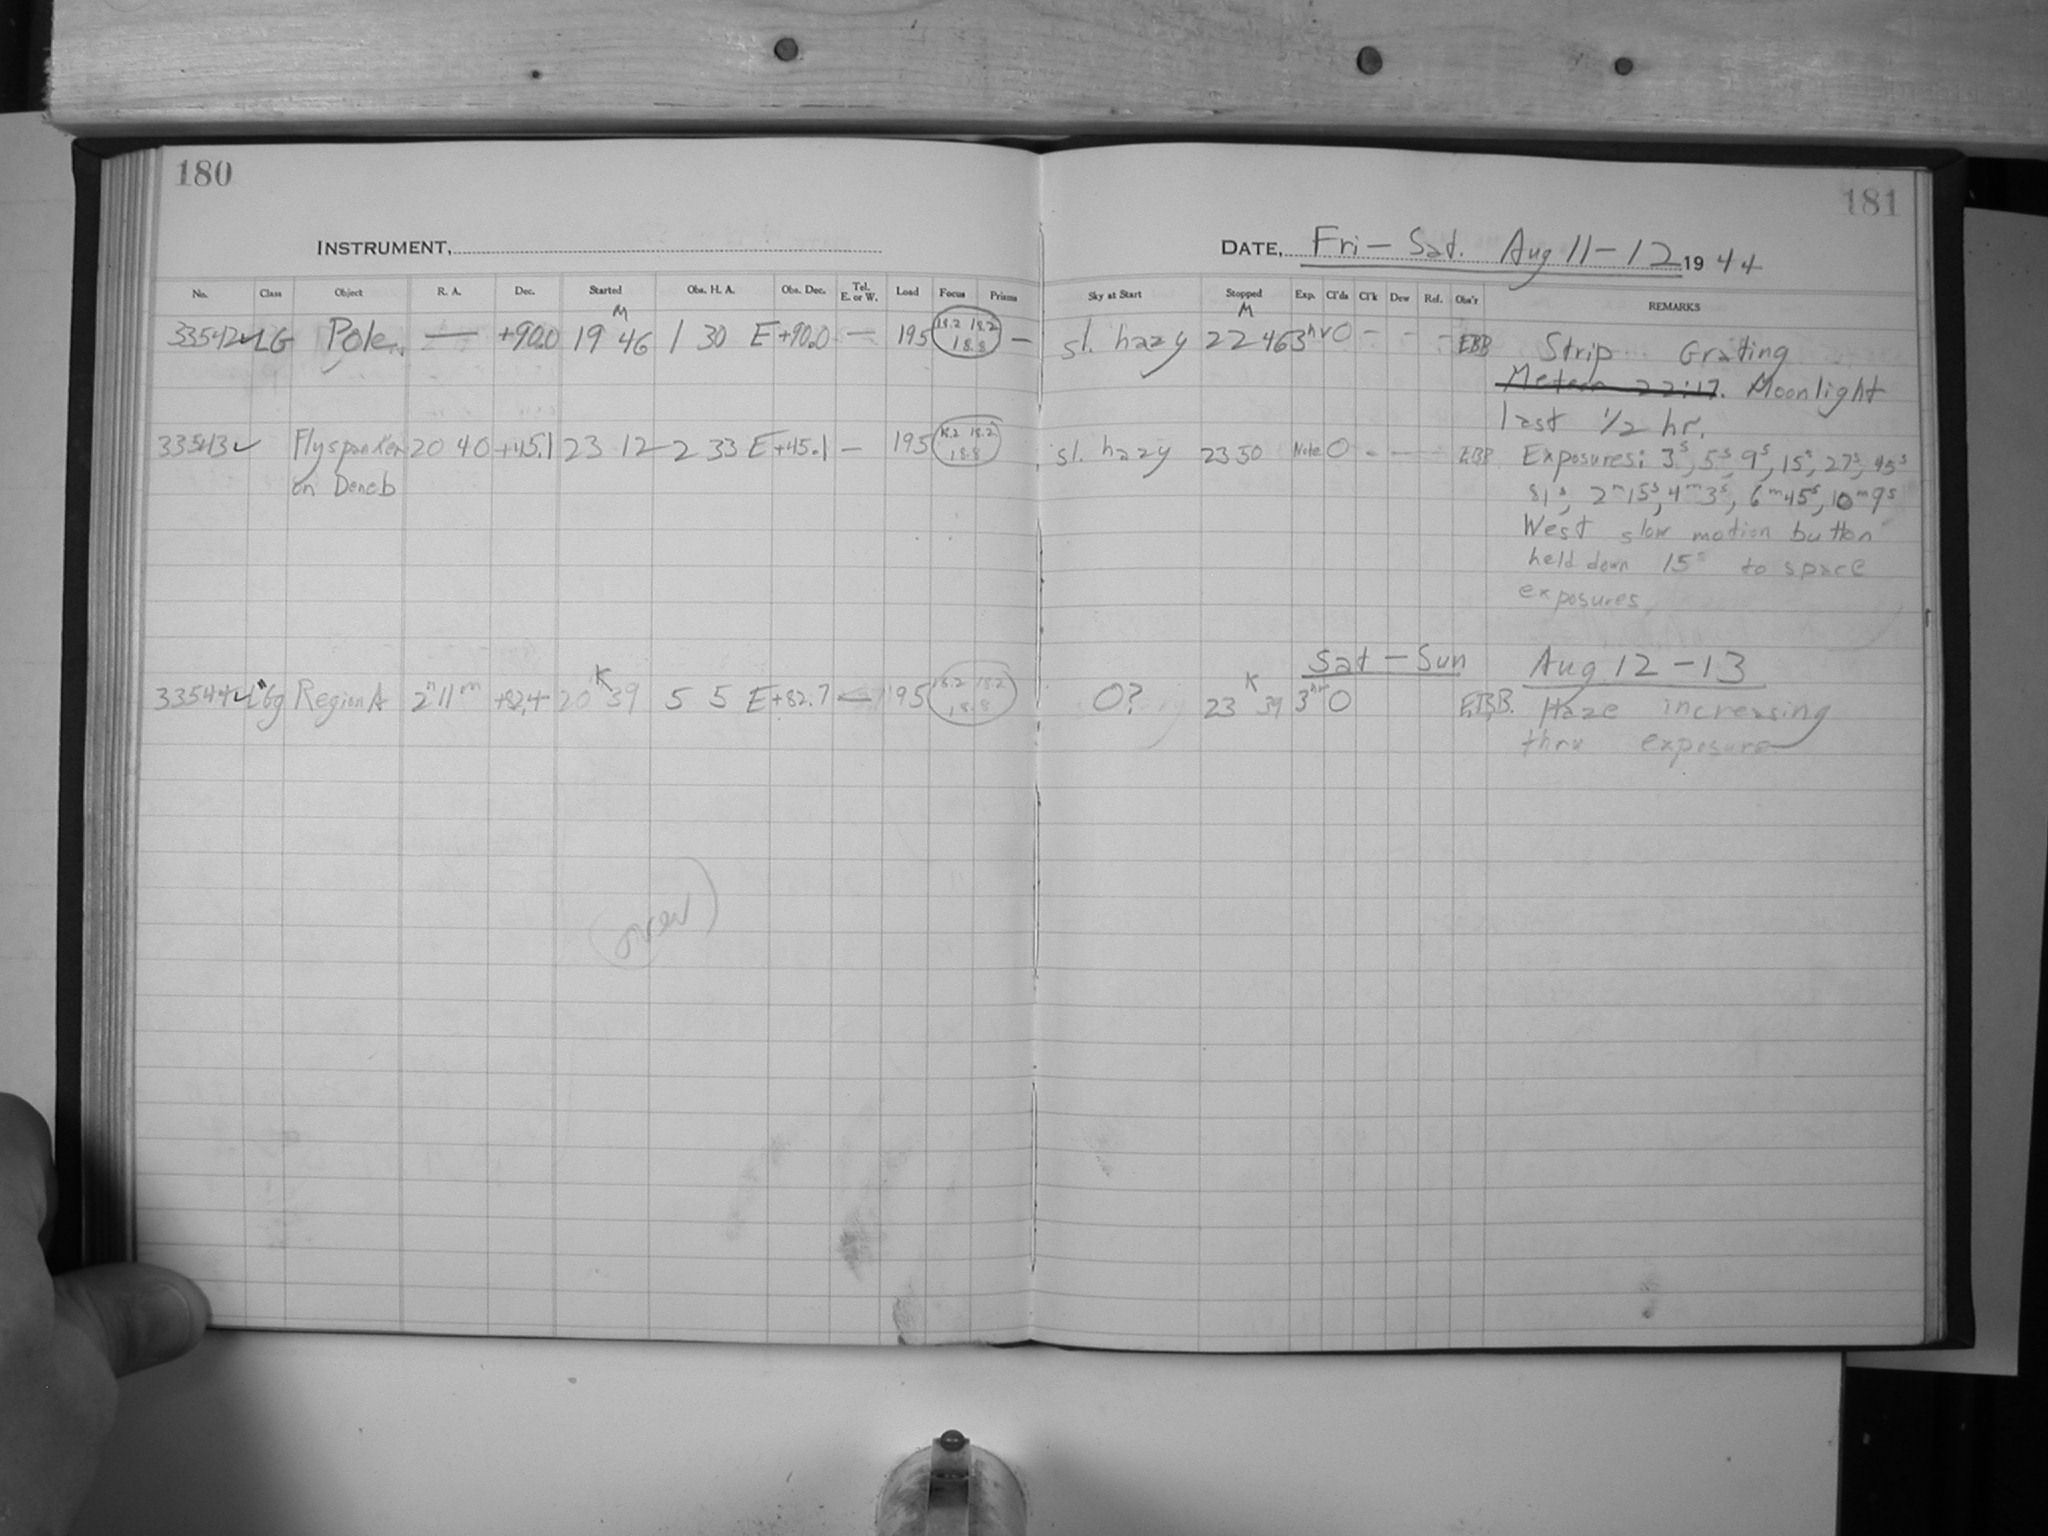 180
181
INSTRUMENT,
DATE, Fri - Sat. Aug 11-12 1944
No. Class Object R. A. Dec. Started Obs. H. A. Obs. Dec. Tel. E. or W. Load Focus Prisms Sky at Start Stopped Exp. Cl'ds Cl'k Dew Ref. Obs'r REMARKS
M M
33542 ✓ LG Pole — +90.0 19 46 1 30 E +90.0 — 195 18.2 18.2 18.8 — sl. hazy 22 46 3hr 0 - - - EBB Strip Grating
Meteor 22:17. Moonlight
last 1/2 hr.
33543 ✓ Flyspanker 20 40 +45.1 23 12 2 33 E +45.1 — 195 18.2 18.2 18.8 sl. hazy 23 50 Note 0 - - - EBB Exposures: 3s, 5s, 9s, 15s, 27s, 45s
on Deneb 81s, 2m15s, 4m3s, 6m45s, 10m9s
West slow motion button
held down 15s to space
exposures,
Sat - Sun Aug 12-13
K K
33544 ✓ Region A 2h 11m +82.4 20 39 5 5 E +82.7 195 18.2 18.2 18.8 0? 23 39 3hr 0 E.B.B. Haze increasing
thru exposure
(over)